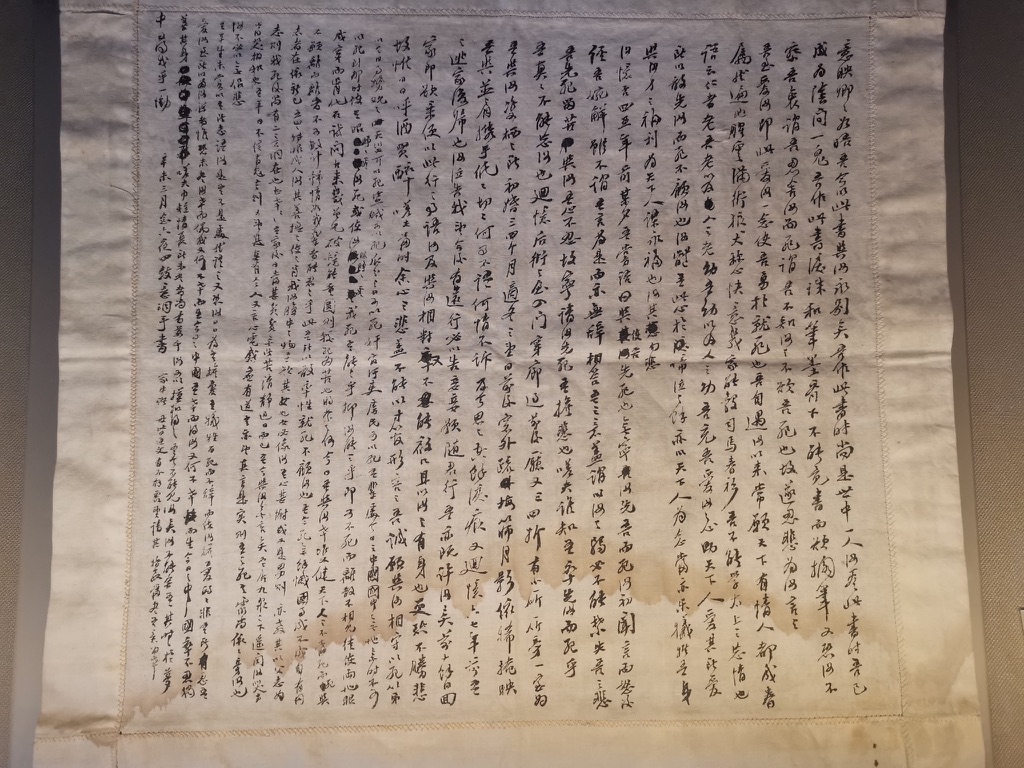 意映卿卿如晤吾今以此書與汝永別矣吾作此書時尚是世中一人汝看此書時吾已
成為陰間一鬼吾作此書淚珠和筆墨齊下不能竟書而欲擱筆又恐汝不
察吾衷謂吾忍舍汝而死謂吾不知汝之不欲吾死也故遂忍悲為汝言之
吾至愛汝即此愛汝一念使吾勇於就死也吾自遇汝以來常願天下有情人都成眷
屬然遍地腥羶滿街狼犬稱心快意幾家能彀司馬春衫吾不能學太上之忘情也
語云仁者老吾老以及人之老幼吾幼以及人之幼吾充吾愛汝之心助天下人愛其所愛
所以敢先汝而死不顧汝也汝體吾此心於啼泣之餘亦以天下人為念當亦樂犧牲吾身
與汝身之福利為天下人謀永福也汝其勿悲
汝憶否四五年前某夕吾嘗語曰與使吾先死也無寧汝先吾而死汝初聞言而怒後
經吾婉解雖不謂吾言為是而亦無辭相答吾之意蓋謂以汝之弱必不能禁失吾之悲
吾先死留苦與汝吾心不忍故寧請汝先死吾擔悲也嗟夫誰知吾卒先汝而死乎
吾真真不能忘汝也迴憶后街之屋入門穿廊過前後廳又三四折有小廳廳旁一室為
吾與汝雙棲之所初婚三四個月適冬之望日前後窗外疏梅篩月影依稀掩映
吾與並肩攜手低低切切何事不語何情不訴及今思之空餘淚痕又迴憶六七年前吾
之逃家復歸也汝泣告我望今後有遠行必以告妾妾願隨君行吾亦既許汝矣前十餘日回
家即欲乘便以此行之事語汝及與汝相對又不能啟口且以汝之有身也更恐不勝悲
故惟日日呼酒買醉嗟夫當時余心之悲蓋不能以寸管形容之吾誠願與汝相守以死第
以今日事勢觀之天災可以死盜賊可以死瓜分之日可以死奸官污吏虐民可以死吾輩處今日之中國國中無地無時不可
以死到那時使吾眼睜睜看汝死或使汝眼睜睜看我死吾能之乎抑汝能之乎即可不死而離散不相見徒使兩地眼
成穿而骨化石試問古來幾曾見破鏡能重圓則較死為苦也將奈之何今日吾與汝幸雙健天下人不當死而死與
不願離而離者不可數計鍾情如我輩者能忍之乎此吾所以敢率性就死不顧汝也吾今死無餘憾國事成不成自有同
志者在依新已五歲轉眼成人汝其善撫之使之肖我汝腹中之物吾疑其女也女必像汝吾心甚慰或又是男則亦教其以父志為
志則我死後尚有二意洞在也甚幸甚幸吾家後日當甚貧貧無所苦清靜過日而已吾今與汝無言矣吾居九泉之下遙聞汝哭聲
當哭相和也吾平日不信有鬼今則又望其真有今人又言心電感應有道吾亦望其言是實則吾之死吾靈尚依依旁汝也
汝不必以無侶悲
吾平生未嘗以吾所志語汝是吾不是處然語之又恐汝日日為吾擔憂吾犧牲百死而不辭而使汝擔憂的的非吾所忍吾
愛汝至所以為汝謀者惟恐未盡汝幸而偶我又何不幸而生今日之中國吾幸而得汝又何不幸而生今日之中國卒不忍獨
善其身嗟夫巾短情長所未盡者尚有萬千汝可以模擬得之吾今不能見汝矣汝不能舍吾其時時於夢
中得我乎一慟 辛未三月念六夜四鼓意洞手書
家中諸母皆通文有不解處望請其指教當盡吾意為幸